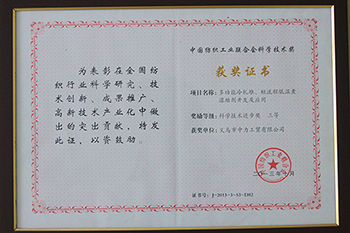 为表彰在全国纺
织行业科学研究、技
术创新、成果推广、
高新技术产业化中做
出的突出贡献，特发
此证，以资鼓励。
中国纺织工业联合会科学技术奖
获奖证书
项目名称：多功能冷轧堆、短流程低温煮
漂助剂开发及应用
奖励等级：科学技术进步奖 三等
获奖单位：义乌市中力工贸有限公司
中国纺织工业联合会
二〇一三年 月
证书号：J-2013-3-53-E1R2